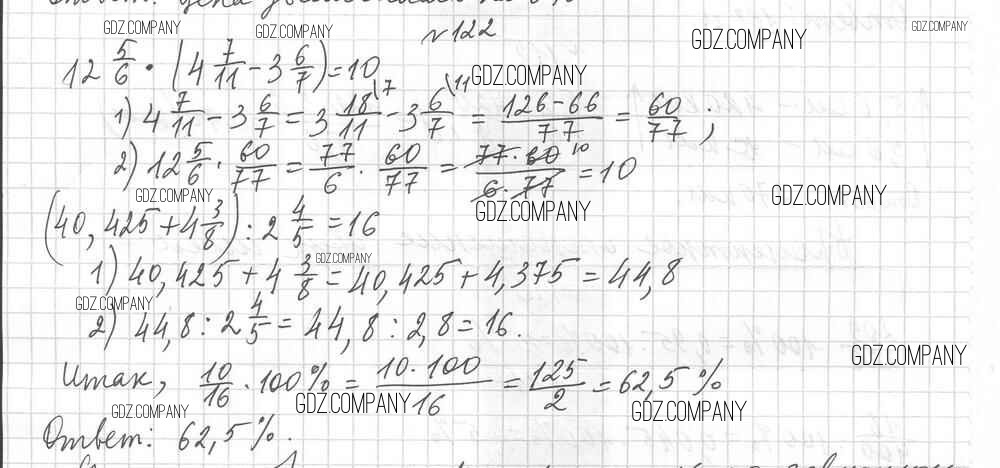 GDZ.COMPANY GDZ.COMPANY №122 GDZ.COMPANY GDZ.COMPANY
12 5/6 · (4 7/11 - 3 6/7) = 10 GDZ.COMPANY
1) 4 7/11 - 3 6/7 = 3 18/11 \7 - 3 6/7 \11 = 126-66/77 = 60/77 ;
2) 12 5/6 · 60/77 = 77/6 · 60/77 = 77·60 10/6·77 = 10
GDZ.COMPANY GDZ.COMPANY GDZ.COMPANY
(40,425 + 4 3/8) : 2 4/5 = 16
GDZ.COMPANY
1) 40,425 + 4 3/8 = 40,425 + 4,375 = 44,8
GDZ.COMPANY
2) 44,8 : 2 4/5 = 44,8 : 2,8 = 16.
GDZ.COMPANY
Итак, 10/16 · 100% = 10·100/16 = 125/2 = 62,5 %
GDZ.COMPANY GDZ.COMPANY GDZ.COMPANY
Ответ: 62,5%.